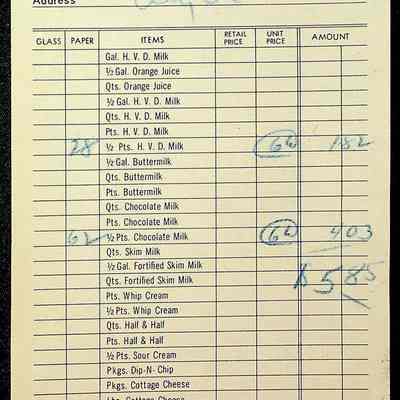 Address
GLASS PAPER ITEMS RETAIL PRICE UNIT PRICE AMOUNT
Gal. H. V. D. Milk
½ Gal. Orange Juice
Qts. Orange Juice
½ Gal. H. V. D. Milk
Qts. H. V. D. Milk
Pts. H. V. D. Milk
28 ½ Pts. H. V. D. Milk 6½ 182
½ Gal. Buttermilk
Qts. Buttermilk
Pts. Buttermilk
Qts. Chocolate Milk
Pts. Chocolate Milk
62 ½ Pts. Chocolate Milk 6½ 403
Qts. Skim Milk
½ Gal. Fortified Skim Milk $ 5 85
Qts. Fortified Skim Milk
Pts. Whip Cream
½ Pts. Whip Cream
Qts. Half & Half
Pts. Half & Half
½ Pts. Sour Cream
Pkgs. Dip-N- Chip
Pkgs. Cottage Cheese
Lbs. Cottage Cheese